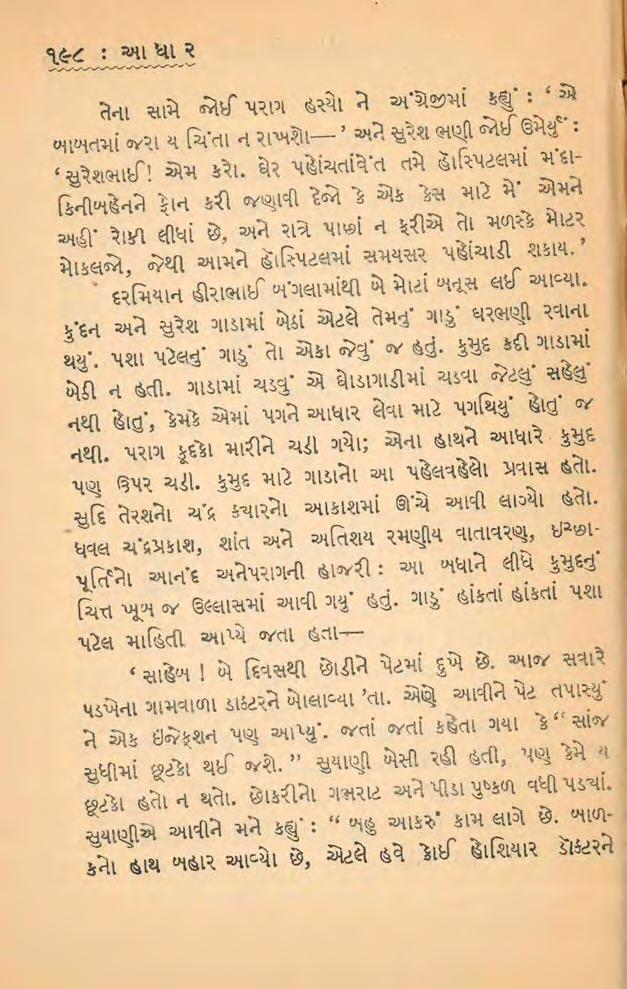 ૧૯૮ : આધાર
તેના સામે જોઈ પરાગ હસ્યો ને અંગ્રેજીમાં કહ્યું : ‘ એ
બાબતમાં જરા ય ચિંતા ન રાખશો— ’ અને સુરેશ ભણી જોઈ ઉમેર્યું :
‘ સુરેશભાઈ ! એમ કરો. ઘેર પહોંચતાંવેંત તમે હૉસ્પિટલમાં મંદા-
કિનીબહેનને ફોન કરી જણાવી દેજો કે એક કેસ માટે મેં એમને
અહીં રોકી લીધાં છે, અને રાત્રે પાછાં ન ફરીએ તો મળસ્કે મોટર
મોકલજો, જેથી આમને હૉસ્પિટલમાં સમયસર પહોંચાડી શકાય. ’
દરમિયાન હીરાભાઈ બંગલામાંથી બે મોટાં બનૂસ લઈ આવ્યા.
કુંદન અને સુરેશ ગાડામાં બેઠાં એટલે તેમનું ગાડું ઘરભણી રવાના
થયું. પશા પટેલનું ગાડું તો એકા જેવું જ હતું. કુમુદ કદી ગાડામાં
બેઠી ન હતી. ગાડામાં ચડવું એ ઘોડાગાડીમાં ચડવા જેટલું સહેલું
નથી હોતું, કેમકે એમાં પગને આધાર લેવા માટે પગથિયું હોતું જ
નથી. પરાગ કૂદકો મારીને ચડી ગયો; એના હાથને આધારે કુમુદ
પણ ઉપર ચડી. કુમુદ માટે ગાડાનો આ પહેલવહેલો પ્રવાસ હતો.
સુદિ તેરશનો ચંદ્ર ક્યારનો આકાશમાં ઊંચે આવી લાગ્યો હતો.
ધવલ ચંદ્રપ્રકાશ, શાંત અને અતિશય રમણીય વાતાવરણ, ઇચ્છા-
પૂર્તિનો આનંદ અનેપરાગની હાજરી : આ બધાને લીધે કુમુદનું
ચિત્ત ખૂબ જ ઉલ્લાસમાં આવી ગયું હતું. ગાડું હાંકતાં હાંકતાં પશા
પટેલ માહિતી આપ્યે જતા હતા—
‘ સાહેબ ! બે દિવસથી છોડીને પેટમાં દુખે છે. આજ સવારે
પડખેના ગામવાળા ડાક્ટરને બોલાવ્યા 'તા. એણે આવીને પેટ તપાસ્યું
ને એક ઇંજેક્શન પણ આપ્યું. જતાં જતાં કહેતા ગયા કે “ સાંજ
સુધીમાં છૂટકો થઈ જશે. ” સુયાણી બેસી રહી હતી, પણ કેમે ય
છૂટકો હતો ન થતો. છોકરીનો ગભરાટ અને પીડા પુષ્કળ વધી પડ્યાં.
સુયાણીએ આવીને મને કહ્યું : “ બહુ આકરું કામ લાગે છે. બાળ-
કનો હાથ બહાર આવ્યો છે, એટલે હવે કોઈ હોશિયાર ડૉક્ટરને